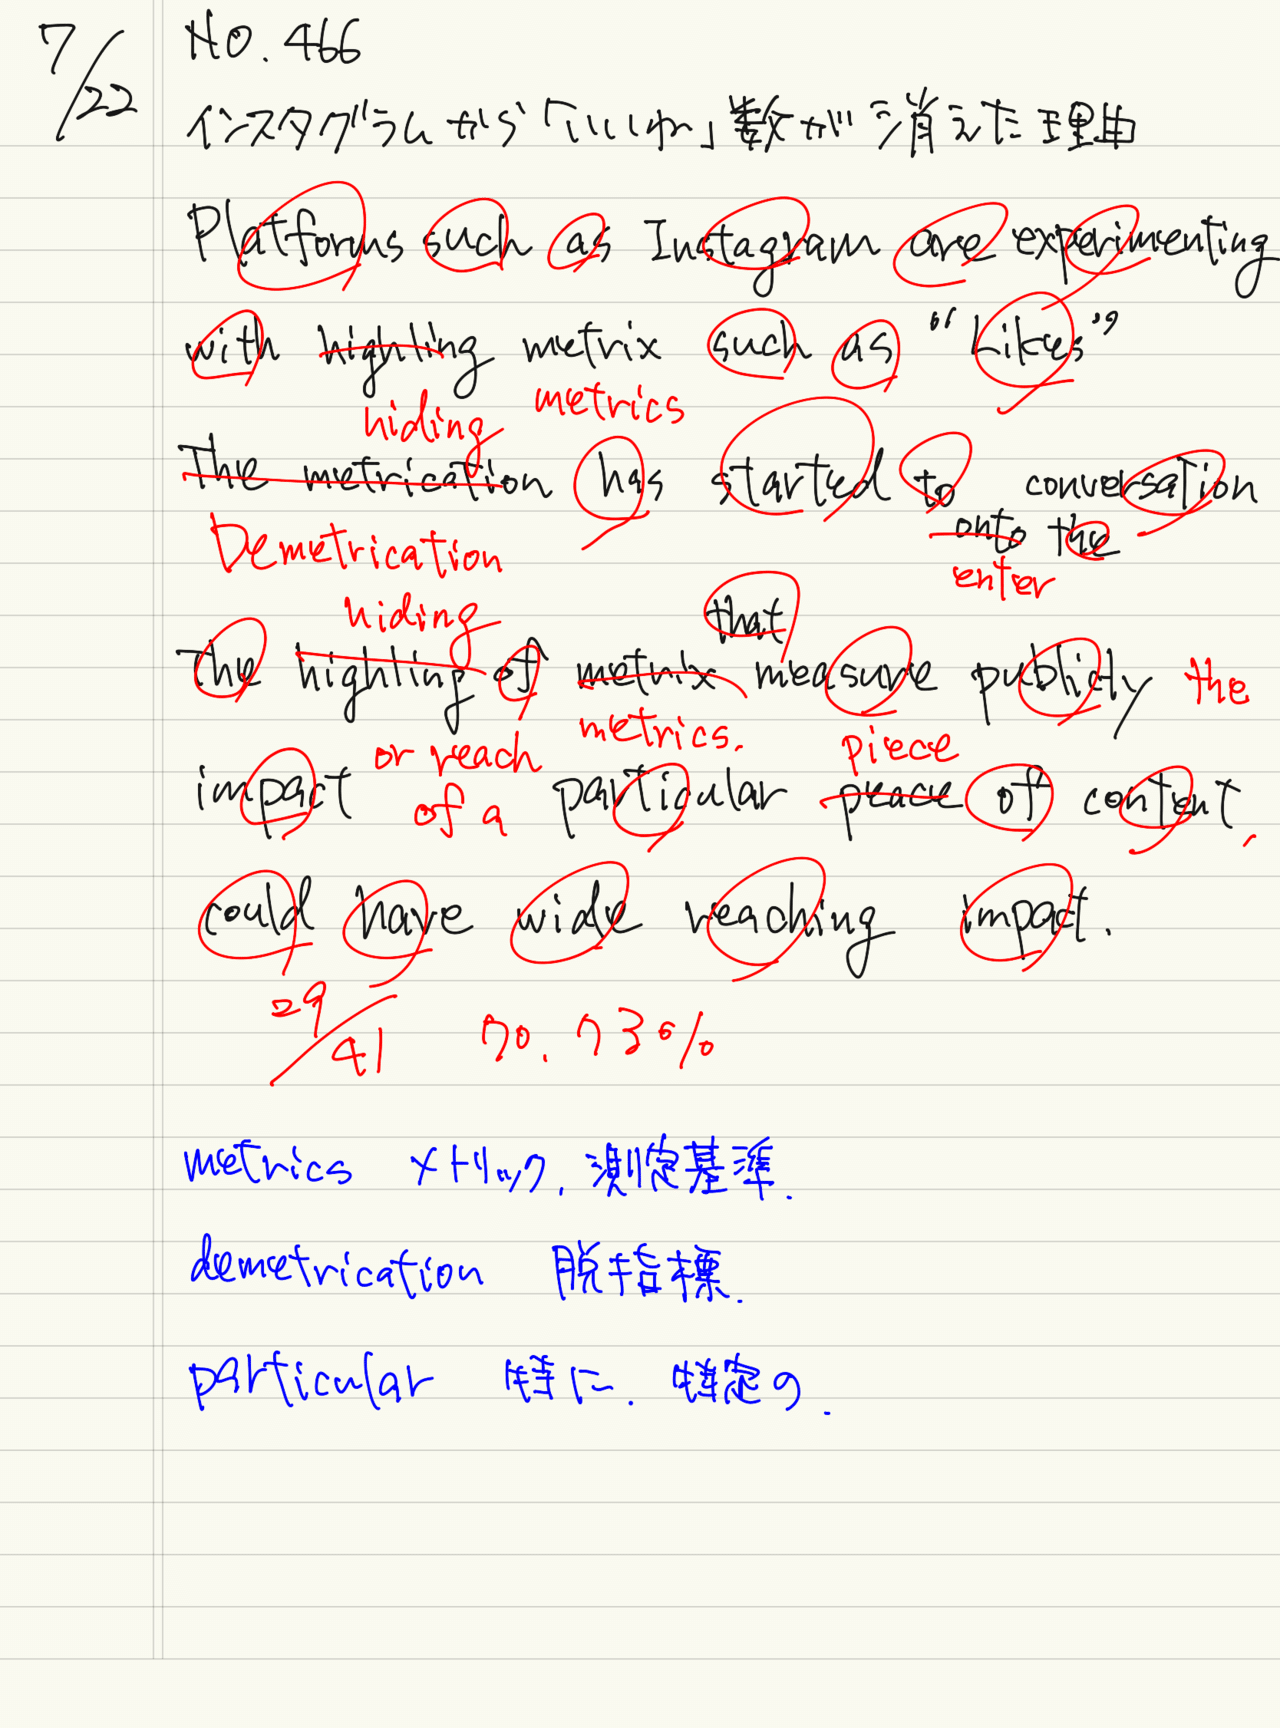 7/22
NO. 466
インスタグラムから「いいね」数が消えた理由
Platforms such as Instagram are experimenting
with highling metrix such as "Likes"
hiding metrics
The metrication has started to conversation
onto the
Demetrication enter
hiding that
The highling of metrix measure publicly the
or reach metrics. piece
impact of a particular peace of content,
could have wide reaching impact.
29/41 70.73%
metrics メトリック, 測定基準.
demetrication 脱指標.
particular 特に. 特定の.